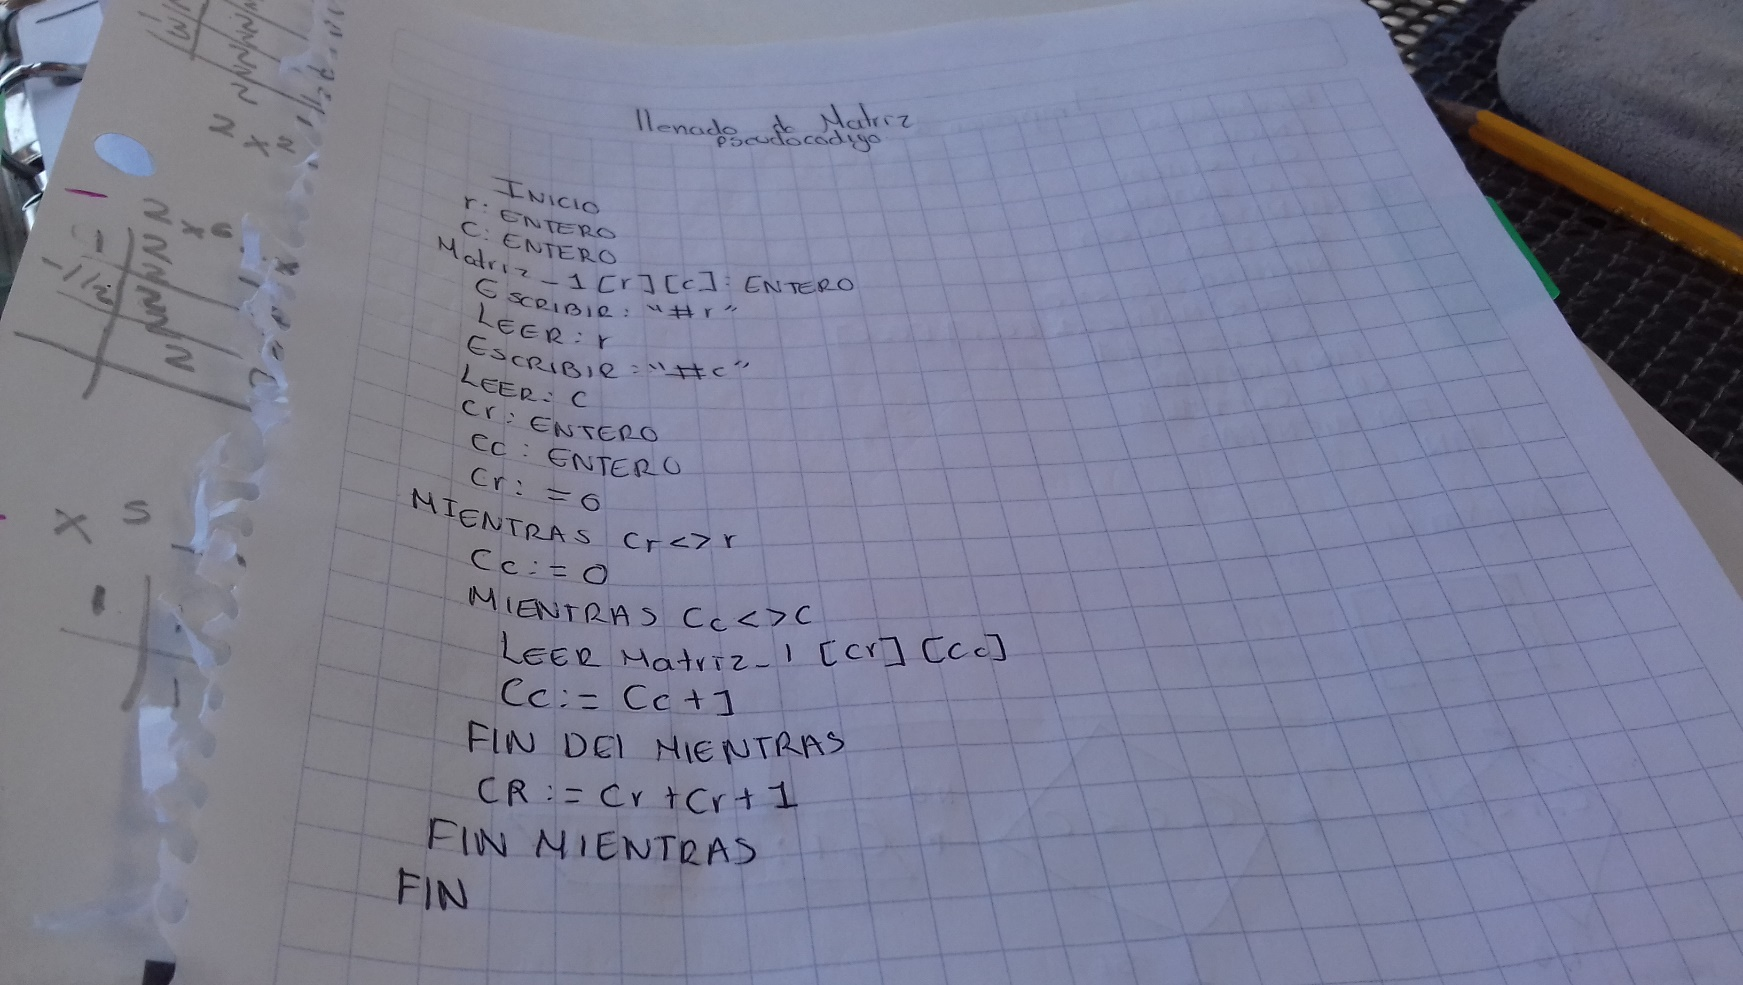 llenado de Matriz
pseudocodigo
INICIO
r: ENTERO
C: ENTERO
Matriz-1[r][c]: ENTERO
ESCRIBIR: "#r"
LEER: r
ESCRIBIR: "#c"
LEER: C
Cr: ENTERO
Cc: ENTERO
Cr:=0
MIENTRAS Cr<>r
Cc:=0
MIENTRAS Cc<>C
LEER Matriz-1[Cr][Cc]
Cc:= Cc+1
FIN DEl MIENTRAS
CR:= Cr+Cr+1
FIN MIENTRAS
FIN